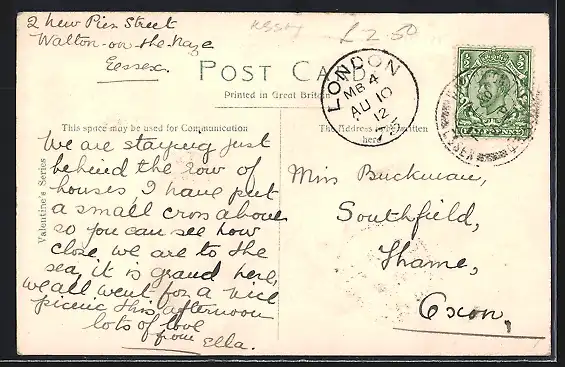 2 new Pier Street
Walton-on-the-Naze
Essex.
£2.50
POST CARD
Printed in Great Britain
LONDON
MB 4
AU 10
12
HALFPENNY
ESSEX
This space may be used for Communication
The Address to be written
here
Valentine's Series
We are staying just
behind the row of
houses, I have put
a small cross above
so you can see how
close we are to the
sea, it is grand here,
we all went for a nice
picnic this afternoon
lots of love
from Ella.
Miss Buckman,
Southfield,
Thame,
Oxon,